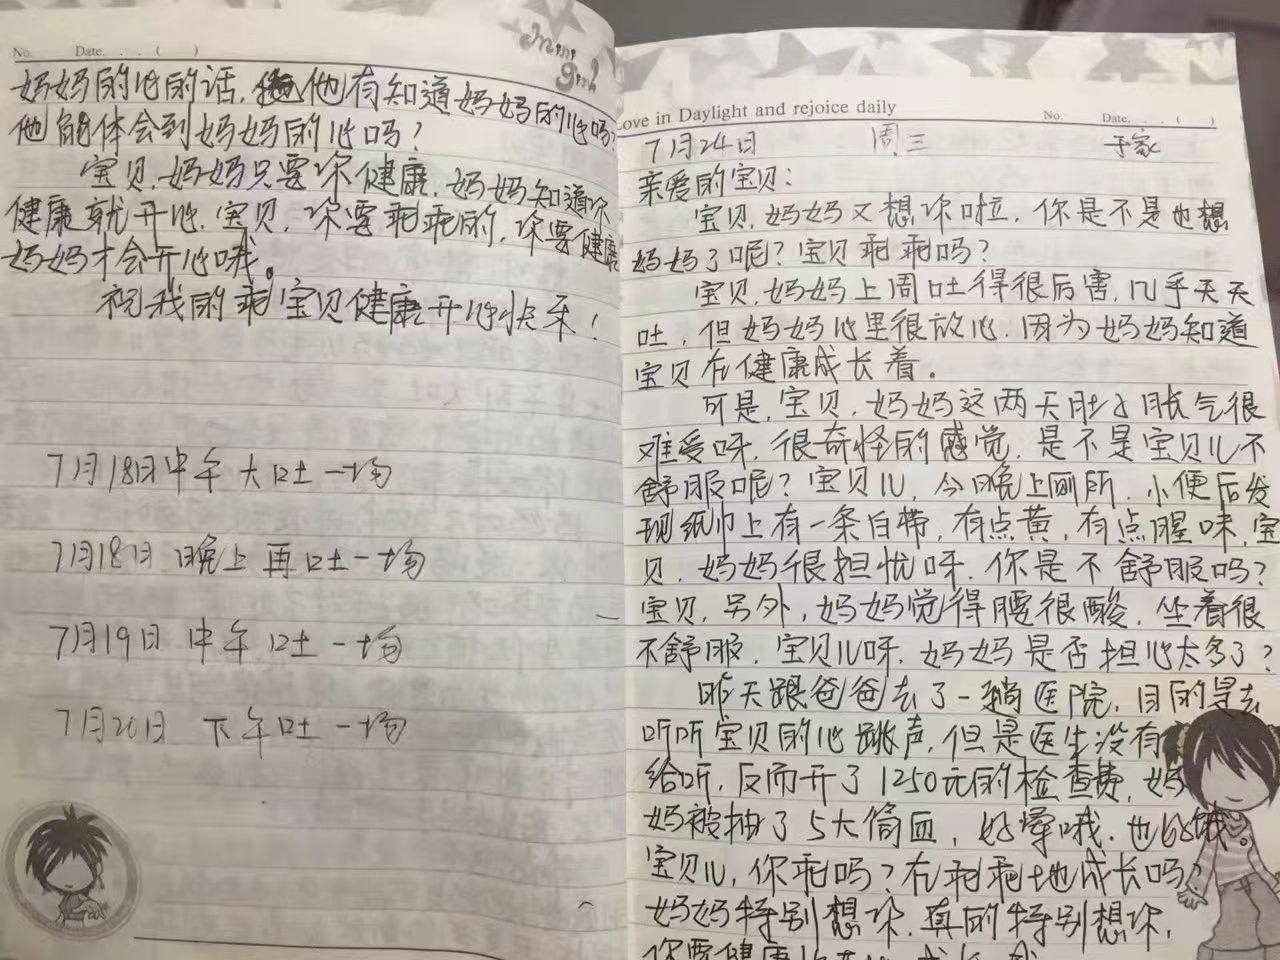 Mini Girl
No.    Date.  .  .  (    )
妈妈的心的话,他有知道妈妈的心吗?
他能体会到妈妈的心吗?
宝贝,妈妈只要你健康,妈妈知道你
健康就开心,宝贝,你要乖乖的,你要健康
妈妈才会开心哦。
祝我的乖宝贝健康开心快乐!
7月18日中午大吐一场
7月18日 晚上再吐一场
7月19日 中午吐一场
7月20日 下午吐一场
Love in Daylight and rejoice daily    No.    Date.  .  .  (    )
7月24日 周三 于家
亲爱的宝贝:
宝贝,妈妈又想你啦,你是不是也想
妈妈了呢?宝贝乖乖吗?
宝贝,妈妈上周吐得很厉害,几乎天天
吐,但妈妈心里很放心,因为妈妈知道
宝贝在健康成长着。
可是,宝贝,妈妈这两天肚子胀气很
难受呀,很奇怪的感觉,是不是宝贝儿不
舒服呢?宝贝儿,今晚上厕所,小便后发
现纸巾上有一条白带,有点黄,有点腥味,宝
贝,妈妈很担忧呀,你是不舒服吗?
宝贝,另外,妈妈觉得腰很酸,坐着很
不舒服,宝贝儿呀,妈妈是否担心太多了?
昨天跟爸爸去了一趟医院,目的是去
听听宝贝的心跳声,但是医生没有
给听,反而开了1250元的检查费,妈
妈被抽了5大筒血,好
宝贝儿,你乖吗?在乖乖地成长吗?
妈妈特别想你,真的特别想你,
你要健康